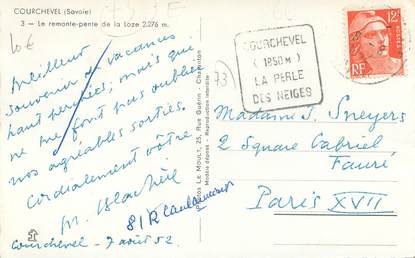 COURCHEVEL (Savoie)
3 - Le remonte-pente de la Loze 2.276 m.
10€
Meilleur
souvenir de vacances
haut perchées, mais qui
ne me font pas oublier
nos agréables sorties.
Cordialement vôtre
M.
81 R
Courchevel - 7 août 52
Photos LE MOULT, 25, Rue Guérin - Charenton
Modèle déposé - Reproduction interdite
73
COURCHEVEL
(1850 m)
LA PERLE
DES NEIGES
12F
Madame J. Sneyers
2 Square Gabriel
Fauré
Paris XVII